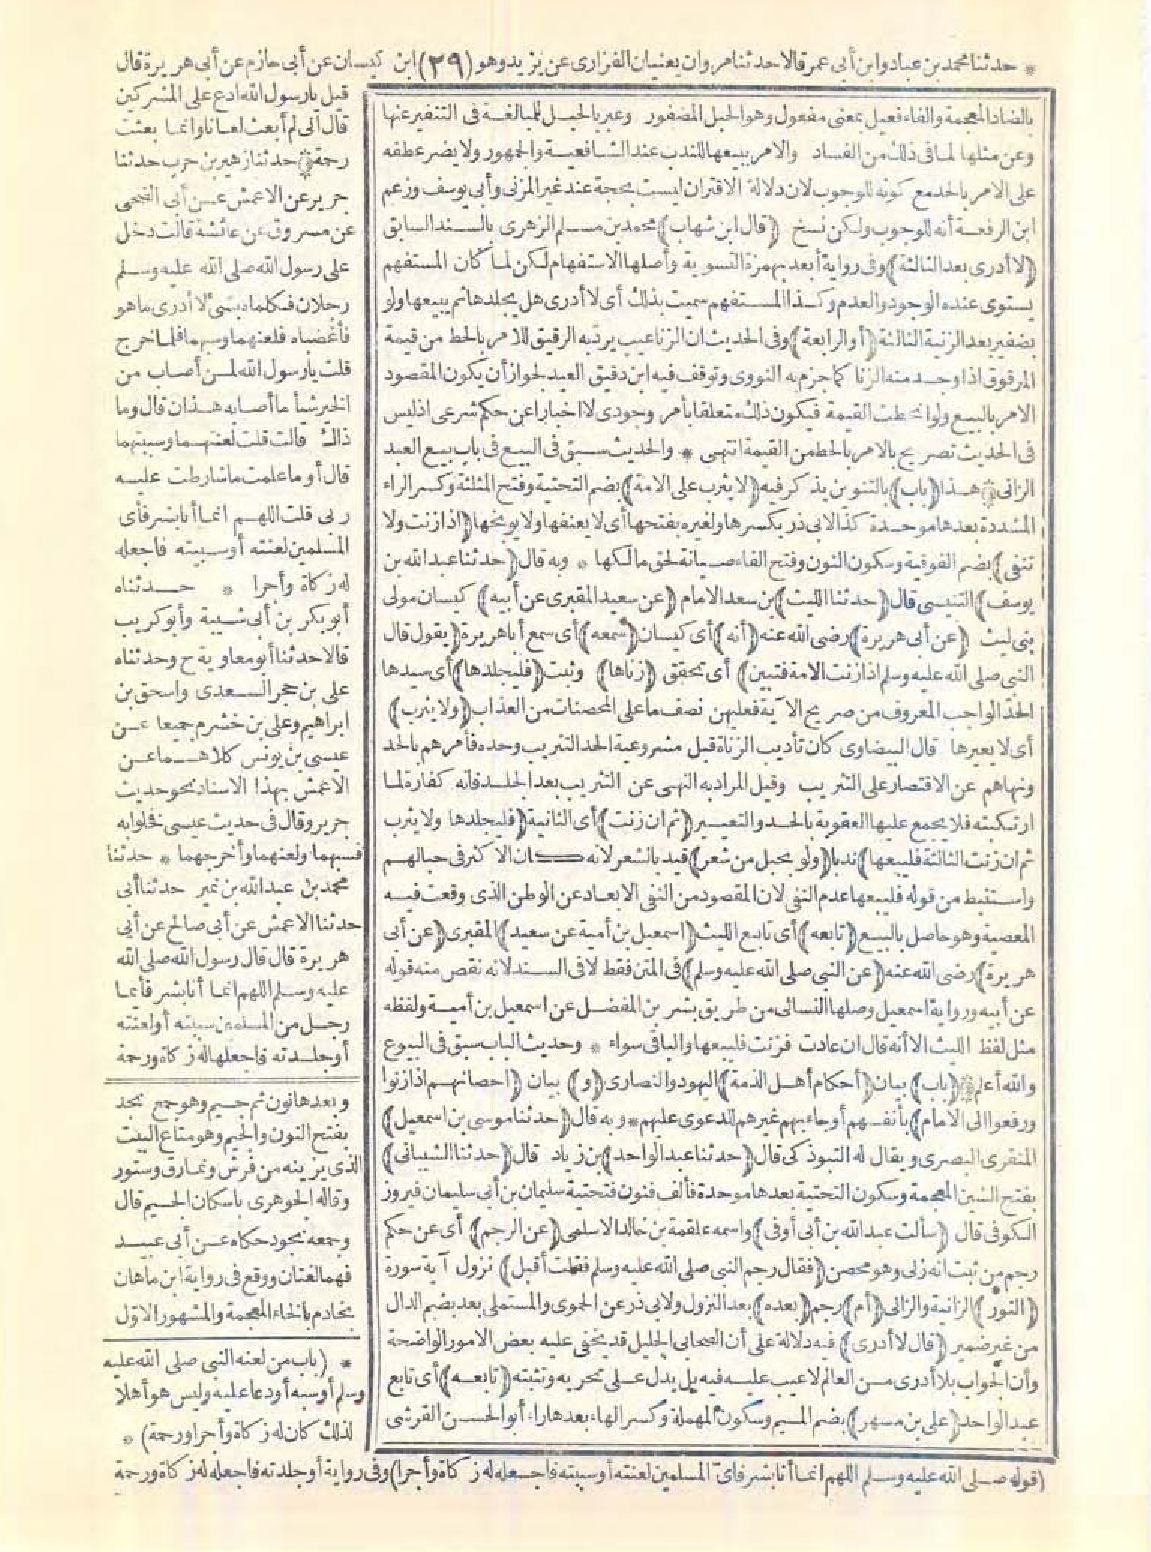 * حدثنا محمد بن عباد وابن أبى عمر قالا حدثنا مروان يعنيان الفزارى عن يزيد وهو (٣٩) ابن كيسان عن أبى حازم عن أبى هريرة قال
قيل يا رسول الله ادع على المشركين
قال انى لم أبعث لعانا وانما بعثت
رحمة حدثنا زهير بن حرب حدثنا
جرير عن الاعمش عن أبى الضحى
عن مسروق عن عائشة قالت دخل
على رسول الله صلى الله عليه وسلم
رجلان فكلماه بشئ لا أدرى ما هو
فأغضباه فلعنهما وسبهما فلما خرج
قلت يا رسول الله لمن أصاب من
الخير شيأ ما أصابه هذان قال وما
ذاك قالت قلت لعنتهما وسببتهما
قال أو ما علمت ما شارطت عليه
ربى قلت اللهم انما أنا بشر فأى
المسلمين لعنته أو سببته فاجعله
له زكاة وأجرا * حدثناه
أبو بكر بن أبى شيبة وأبو كريب
قالا حدثنا أبو معاوية ح وحدثناه
على بن حجر السعدى واسحق بن
ابراهيم وعلى بن خشرم جميعا عن
عيسى بن يونس كلاهما عن
الأعمش بهذا الاسناد نحو حديث
جرير وقال فى حديث عيسى فخلوا به
فسبهما ولعنهما وأخرجهما * حدثنا
محمد بن عبد الله بن نمير حدثنا أبى
حدثنا الاعمش عن أبى صالح عن أبى
هريرة قال قال رسول الله صلى الله
عليه وسلم اللهم انما أنا بشر فأيما
رجل من المسلمين سببته أو لعنته
أو جلدته فاجعلها له زكاة ورحمة
وبعدها نون ثم جيم وهو جمع نجد
بفتح النون والجيم وهو متاع البيت
الذى يزينه من فرش ونمارق وستور
وقاله الجوهرى باسكان الجيم قال
وجمعه نجود حكاه عن أبى عبيد
فهما لغتان ووقع فى رواية ابن ماهان
بخادم بالخاء المعجمة والمشهور الاول
* (باب من لعنه النبى صلى الله عليه
وسلم أو سبه أو دعا عليه وليس هو أهلا
لذلك كان له زكاة وأجرا ورحمة) *
بالضاد المعجمة والفاء فعيل بمعنى مفعول وهو الحبل المضفور وعبر بالحبل للمبالغة فى التنفير عنها
وعن مثلها لما فى ذلك من الفساد والامر ببيعها للندب عند الشافعية والجمهور ولا يضر عطفه
على الامر بالحد مع كونه للوجوب لان دلالة الاقتران ليست بحجة عند غير المزنى وأبى يوسف وزعم
ابن الرفعة أنه للوجوب ولكن نسخ (قال ابن شهاب) محمد بن مسلم الزهرى بالسند السابق
(لا أدرى بعد الثالثة) وفى رواية أبعد بهمزة التسوية وأصلها الاستفهام لكن لما كان المستفهم
يستوى عنده الوجود والعدم وكذا المستفهم سميت بذلك أى لا أدرى هل يجلدها ثم يبيعها ولو
بضفير بعد الزنية الثالثة (أو الرابعة) وفى الحديث ان الزنا عيب يرد به الرقيق للامر بالحط من قيمة
المرقوق اذا وجد منه الزنا كما جزم به النووى وتوقف فيه ابن دقيق العيد لجواز أن يكون المقصود
الامر بالبيع ولو انحطت القيمة فيكون ذلك متعلقا بأمر وجودى لا اخبارا عن حكم شرعى اذ ليس
فى الحديث تصريح بالامر بالحط من القيمة انتهى * والحديث سبق فى البيع فى باب بيع العبد
الزانى هذا (باب) بالتنوين يذكر فيه (لا يثرب على الامة) بضم التحتية وفتح المثلثة وكسر الراء
المشددة بعدها موحدة كذا لابى ذر بكسرها ولغيره بفتحها أى لا يعنفها ولا يوبخها (اذا زنت ولا
تنفى) بضم الفوقية وسكون النون وفتح الفاء صيانة لحق مالكها * وبه قال (حدثنا عبد الله بن
يوسف) التنيسى قال (حدثنا الليث) بن سعد الامام (عن سعيد المقبرى عن أبيه) كيسان مولى
بنى ليث (عن أبى هريرة) رضى الله عنه (أنه) أى كيسان (سمعه) أى سمع أبا هريرة (يقول قال
النبى صلى الله عليه وسلم اذا زنت الامة فتبين) أى تحقق (زناها) وثبت (فليجلدها) أى سيدها
الحد الواجب المعروف من صريح الآية فعليهن نصف ما على المحصنات من العذاب (ولا يثرب)
أى لا يعيرها قال البيضاوى كان تأديب الزناة قبل مشروعية الحد التثريب وحده فأمرهم بالحد
ونهاهم عن الاقتصار على التثريب وقيل المراد به النهى عن التثريب بعد الجلد فانه كفارة لما
ارتكبته فلا يجمع عليها العقوبة بالحد والتعيير (ثم ان زنت) أى الثانية (فليجلدها ولا يثرب
ثم ان زنت الثالثة فليبعها) ندبا (ولو بحبل من شعر) قيد بالشعر لانه كان الاكثر فى حبالهم
واستنبط من قوله فليبعها عدم النفى لان المقصود من النفى الابعاد عن الوطن الذى وقعت فيه
المعصية وهو حاصل بالبيع (تابعه) أى تابع الليث (اسمعيل بن أمية عن سعيد) المقبرى (عن أبى
هريرة) رضى الله عنه (عن النبى صلى الله عليه وسلم) فى المتن فقط لا فى السند لانه نقص منه قوله
عن أبيه ورواية اسمعيل وصلها النسائى من طريق بشر بن المفضل عن اسمعيل بن أمية ولفظه
مثل لفظ الليث الا أنه قال ان عادت فزنت فليبعها والباقى سواء * وحديث الباب سبق فى البيوع
والله أعلم (باب) بيان (أحكام أهل الذمة) اليهود والنصارى (و) بيان (احصانهم اذا زنوا
ورفعوا الى الامام) بأنفسهم أو جاء بهم غيرهم للدعوى عليهم * وبه قال (حدثنا موسى بن اسمعيل)
المنقرى البصرى ويقال له التبوذكى قال (حدثنا عبد الواحد) بن زياد قال (حدثنا الشيبانى)
بفتح الشين المعجمة وسكون التحتية بعدها موحدة فألف فنون فتحتية سليمان بن أبى سليمان فيروز
الكوفى قال (سألت عبد الله بن أبى أوفى) واسمه علقمة بن خالد الاسلمى (عن الرجم) أى عن حكم
رجم من ثبت انه زنى وهو محصن (فقال رجم النبى صلى الله عليه وسلم فقلت أقبل) نزول آية سورة
(النور) الزانية والزانى (أم) رجم (بعده) بعد النزول ولابى ذر عن الحموى والمستملى بعد بضم الدال
من غير ضمير (قال لا أدرى) فيه دلالة على أن الصحابى الجليل قد يخفى عليه بعض الامور الواضحة
وأن الجواب بلا أدرى من العالم لا عيب عليه فيه بل يدل على تحريه وتثبته (تابعه) أى تابع
عبد الواحد (على بن مسهر) بضم الميم وسكون المهملة وكسر الهاء بعدها راء أبو الحسن القرشى
(قوله صلى الله عليه وسلم اللهم انما أنا بشر فأى المسلمين لعنته أو سببته فاجعله له زكاة وأجرا) وفى رواية أو جلدته فاجعله له زكاة ورحمة